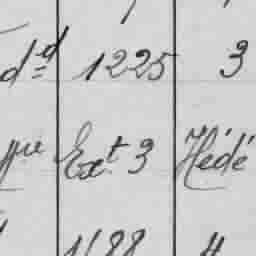 dᵈ 1225 3
que Ext 3 Hédé
1188 4